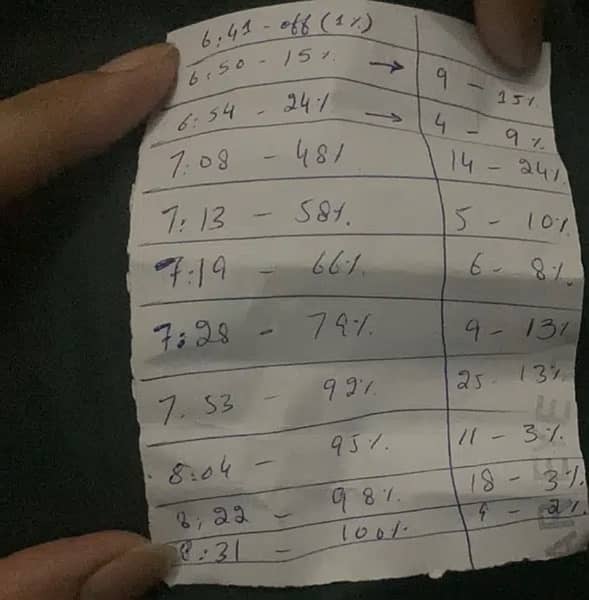 6:41 - off (1%)
6:50 - 15% → 9 - 15%
6:54 - 24% → 4 - 9%
7:08 - 48% 14 - 24%
7:13 - 58% 5 - 10%
7:19 - 66% 6 - 8%
7:28 - 79% 9 - 13%
7.53 - 92% 25 - 13%
8:04 - 95% 11 - 3%
8:22 - 98% 18 - 3%
8:31 - 100% 9 - 2%